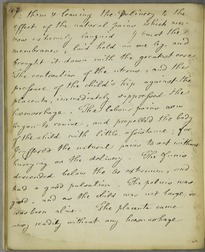 them & leaving the delivery to the
effect of the natural pains which were
now extremely languid. I burst the
membranes & laid hold on one leg and
brought it down with the greatest ease
The contraction of the uterus & the
pressure of the child's hip against the
placenta, immediately suppressed the
hemorrhage. The labour pains were
begun to revive, and propelled the body
of the child with little assistance; for
I suffered the natural pains to act without
hurrying on the delivery. The Funis
descended below the os externum, and
had a good pulsation. The pelvis was
good, and as the child was not large, it
was born alive. The placenta came
away readily without any hemorrhage.